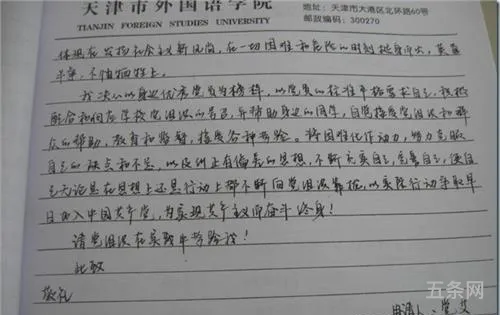 天津市外国语学院
TIANJIN FOREIGN STUDIES UNIVERSITY
地址：天津市大港区北环路60号
邮政编码：300270
体现在发扬社会主义新风尚，在一切困难和危险的时刻挺身而出，英勇
斗争，不怕牺牲上。
我决心以身边优秀党员为榜样，以党员的标准严格要求自己，积极
配合和响应学校党组织的号召，并帮助身边的同学，自觉接受党组织和群
众的帮助，教育和监督，接受各种考验。将困难化作动力，努力克服
自己的缺点和不足，以及纠正有偏差的思想，不断充实自己，完善自己，使自
己无论是在思想上还是行动上都不断向党组织靠拢，以实际行动争取早
日加入中国共产党，为实现共产主义而奋斗终身！
请党组织在实践中考验我！
此致
敬礼
申请人：
五条网